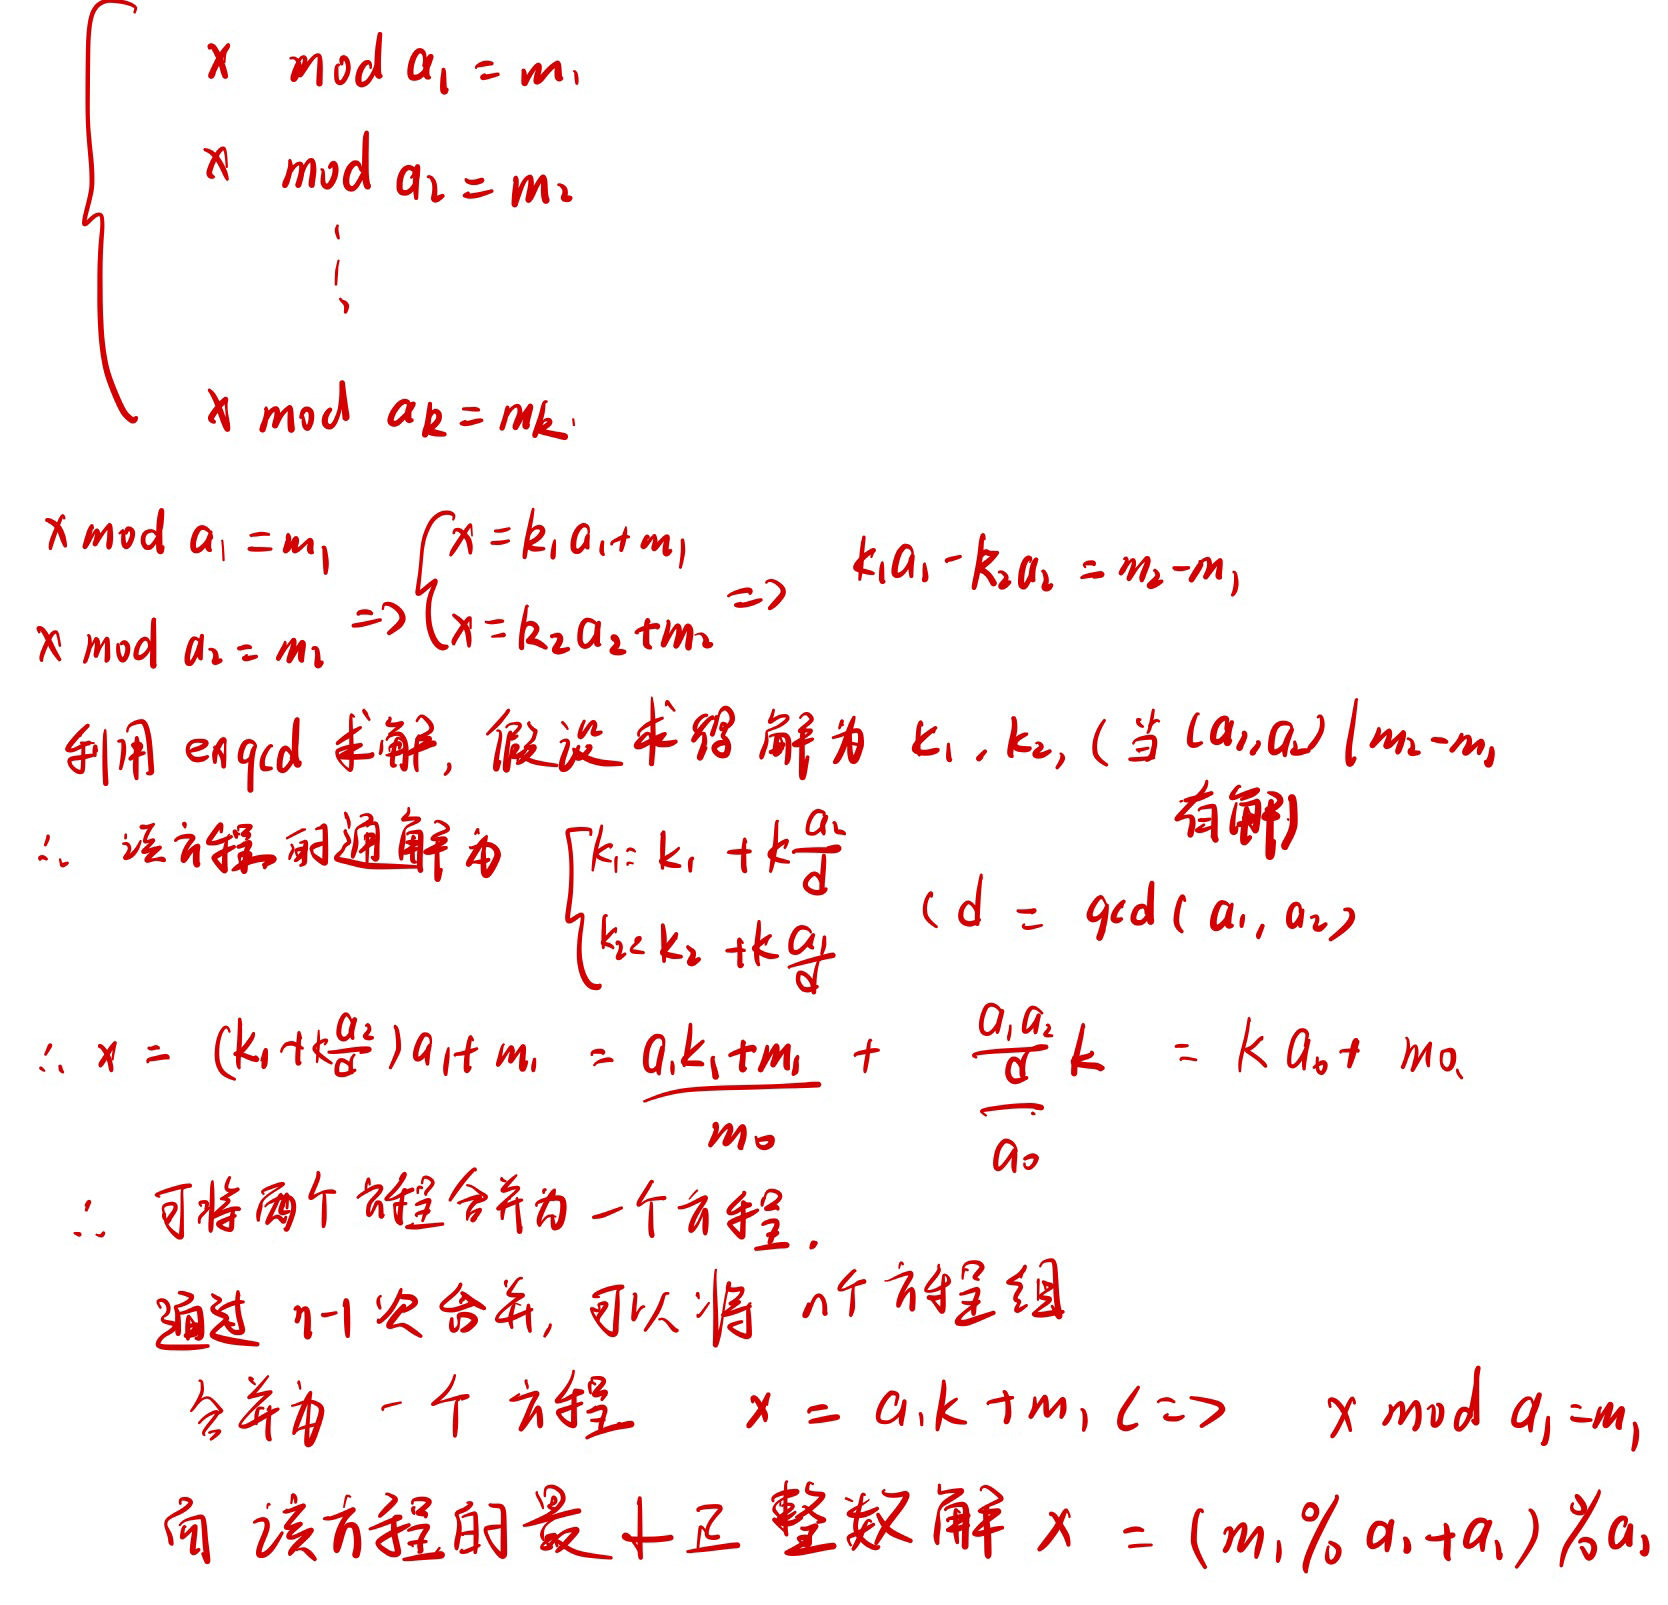 x mod a₁ = m₁
x mod a₂ = m₂
⋮
x mod aₖ = mₖ.
x mod a₁ = m₁
x mod a₂ = m₂
=> { x = k₁a₁ + m₁
x = k₂a₂ + m₂
=> k₁a₁ - k₂a₂ = m₂ - m₁
利用 exgcd 求解, 假设求得解为 k₁, k₂, (当 (a₁, a₂) | m₂ - m₁
有解)
∴ 该方程的通解为 { k₁ = k₁ + k a₂/d
k₂ = k₂ + k a₁/d
(d = gcd(a₁, a₂)
∴ x = (k₁ + k a₂/d) a₁ + m₁ = a₁k₁ + m₁ + a₁a₂/d k = k a₀ + m₀
m₀
a₀
∴ 可将两个方程合并为一个方程.
通过 n-1 次合并, 可以将 n个方程组
合并为 一个方程 x = a₁k + m₁ <=> x mod a₁ = m₁
而 该方程的最小正整数解 x = (m₁ % a₁ + a₁) % a₁